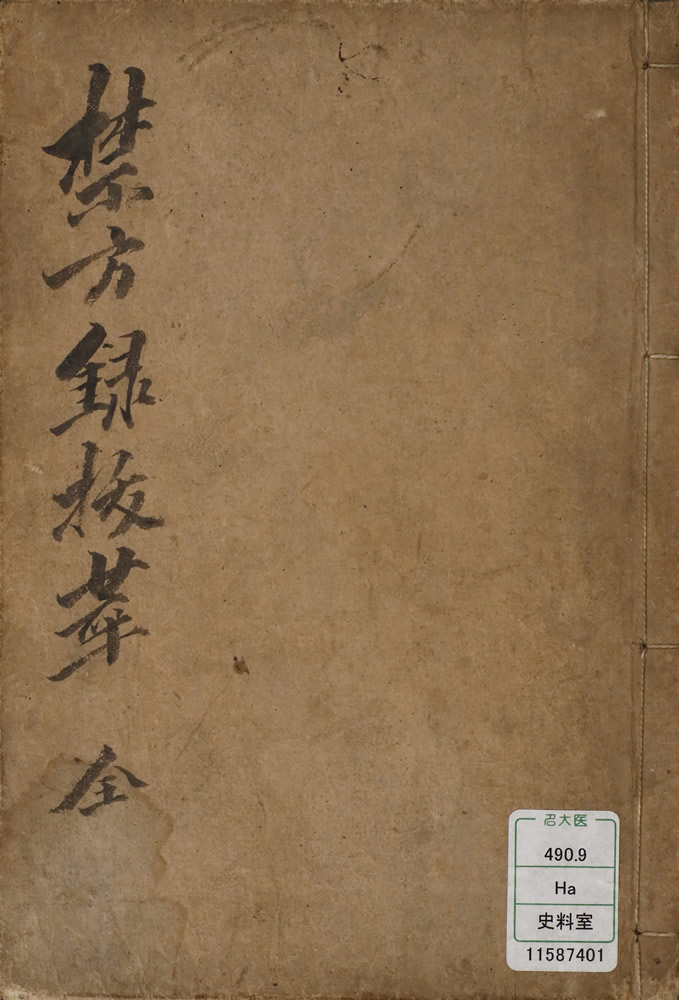 禁方録抜萃 全
名大医
490.9
Ha
史料室
11587401